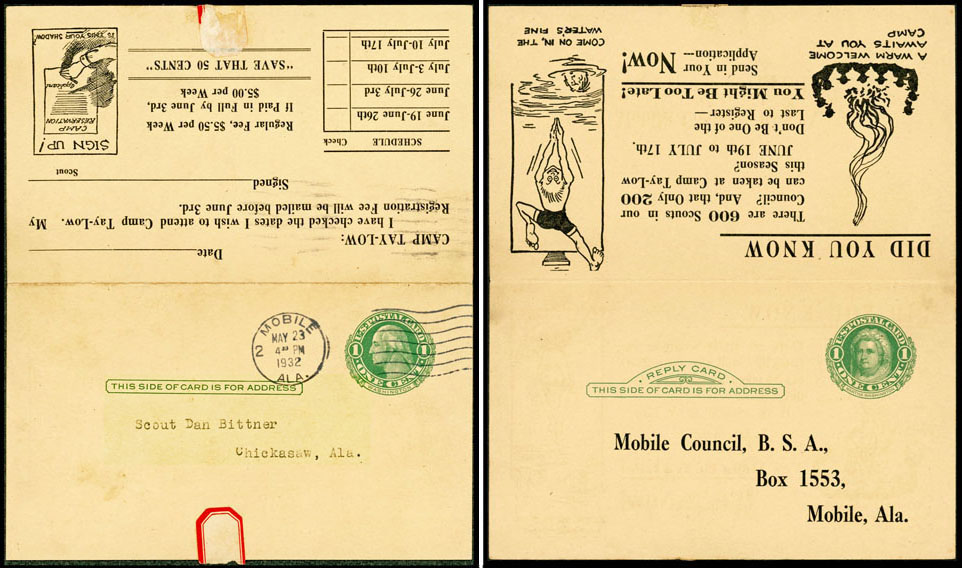 CAMP TAY-LOW:
Date
I have checked the dates I wish to attend Camp Tay-Low. My
Registration Fee will be mailed before June 3rd.
Signed
Scout
SCHEDULE Check
June 19-June 26th
June 26-July 3rd
July 3-July 10th
July 10-July 17th
Regular Fee, $5.50 per Week
If Paid in Full by June 3rd.
$5.00 per Week
"SAVE THAT 50 CENTS"
SIGN UP!
CAMP
RESERVATION
TO THIS YOUR SHADOW?
MOBILE
2
MAY 23
4 PM
1932
ALA.
U.S. POSTAL CARD
1 1
ONE CENT
THIS SIDE OF CARD IS FOR ADDRESS
Scout Dan Bittner
Chickasaw, Ala.
DID YOU KNOW
There are 600 Scouts in our
Council? And, that Only 200
can be taken at Camp Tay-Low
this Season?
JUNE 19th to JULY 17th.
Don't Be One of the
Last to Register—
You Might Be Too Late!
Send in Your
Application—
Now!
A WARM WELCOME
AWAITS YOU AT
CAMP
COME ON IN, THE
WATER'S FINE
REPLY CARD
THIS SIDE OF CARD IS FOR ADDRESS
U.S. POSTAL CARD
1 1
ONE CENT
Mobile Council, B. S. A.,
Box 1553,
Mobile, Ala.